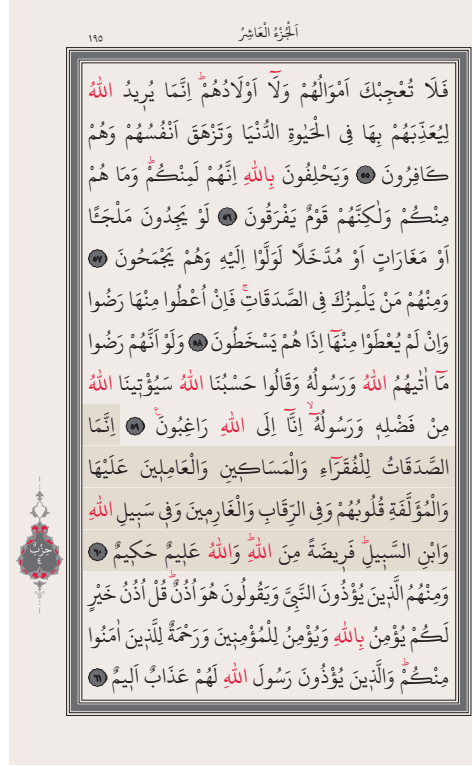 اَلْجُزْءُ الْعَاشِرُ
١٩٥
فَلَا تُعْجِبْكَ اَمْوَالُهُمْ وَلَٓا اَوْلَادُهُمْۜ اِنَّمَا يُر۪يدُ اللّٰهُ
لِيُعَذِّبَهُمْ بِهَا فِي الْحَيٰوةِ الدُّنْيَا وَتَزْهَقَ اَنْفُسُهُمْ وَهُمْ
كَافِرُونَ ٥٥ وَيَحْلِفُونَ بِاللّٰهِ اِنَّهُمْ لَمِنْكُمْۜ وَمَا هُمْ
مِنْكُمْ وَلٰكِنَّهُمْ قَوْمٌ يَفْرَقُونَ ٥٦ لَوْ يَجِدُونَ مَلْجَـًٔا
اَوْ مَغَارَاتٍ اَوْ مُدَّخَلًا لَوَلَّوْا اِلَيْهِ وَهُمْ يَجْمَحُونَ ٥٧
وَمِنْهُمْ مَنْ يَلْمِزُكَ فِي الصَّدَقَاتِۚ فَاِنْ اُعْطُوا مِنْهَا رَضُوا
وَاِنْ لَمْ يُعْطَوْا مِنْهَٓا اِذَا هُمْ يَسْخَطُونَ ٥٨ وَلَوْ اَنَّهُمْ رَضُوا
مَٓا اٰتٰيهُمُ اللّٰهُ وَرَسُولُهُ وَقَالُوا حَسْبُنَا اللّٰهُ سَيُؤْت۪ينَا اللّٰهُ
مِنْ فَضْلِه۪ وَرَسُولُهُٓۙ اِنَّٓا اِلَى اللّٰهِ رَاغِبُونَ۟ ٥٩ اِنَّمَا
الصَّدَقَاتُ لِلْفُقَرَٓاءِ وَالْمَسَاك۪ينِ وَالْعَامِل۪ينَ عَلَيْهَا
وَالْمُؤَلَّفَةِ قُلُوبُهُمْ وَفِي الرِّقَابِ وَالْغَارِم۪ينَ وَف۪ي سَب۪يلِ اللّٰهِ
وَابْنِ السَّب۪يلِۜ فَر۪يضَةً مِنَ اللّٰهِۜ وَاللّٰهُ عَل۪يمٌ حَك۪يمٌ ٦٠
حِزْب
٤
وَمِنْهُمُ الَّذ۪ينَ يُؤْذُونَ النَّبِيَّ وَيَقُولُونَ هُوَ اُذُنٌۜ قُلْ اُذُنُ خَيْرٍ
لَكُمْ يُؤْمِنُ بِاللّٰهِ وَيُؤْمِنُ لِلْمُؤْمِن۪ينَ وَرَحْمَةٌ لِلَّذ۪ينَ اٰمَنُوا
مِنْكُمْۜ وَالَّذ۪ينَ يُؤْذُونَ رَسُولَ اللّٰهِ لَهُمْ عَذَابٌ اَل۪يمٌ ٦١